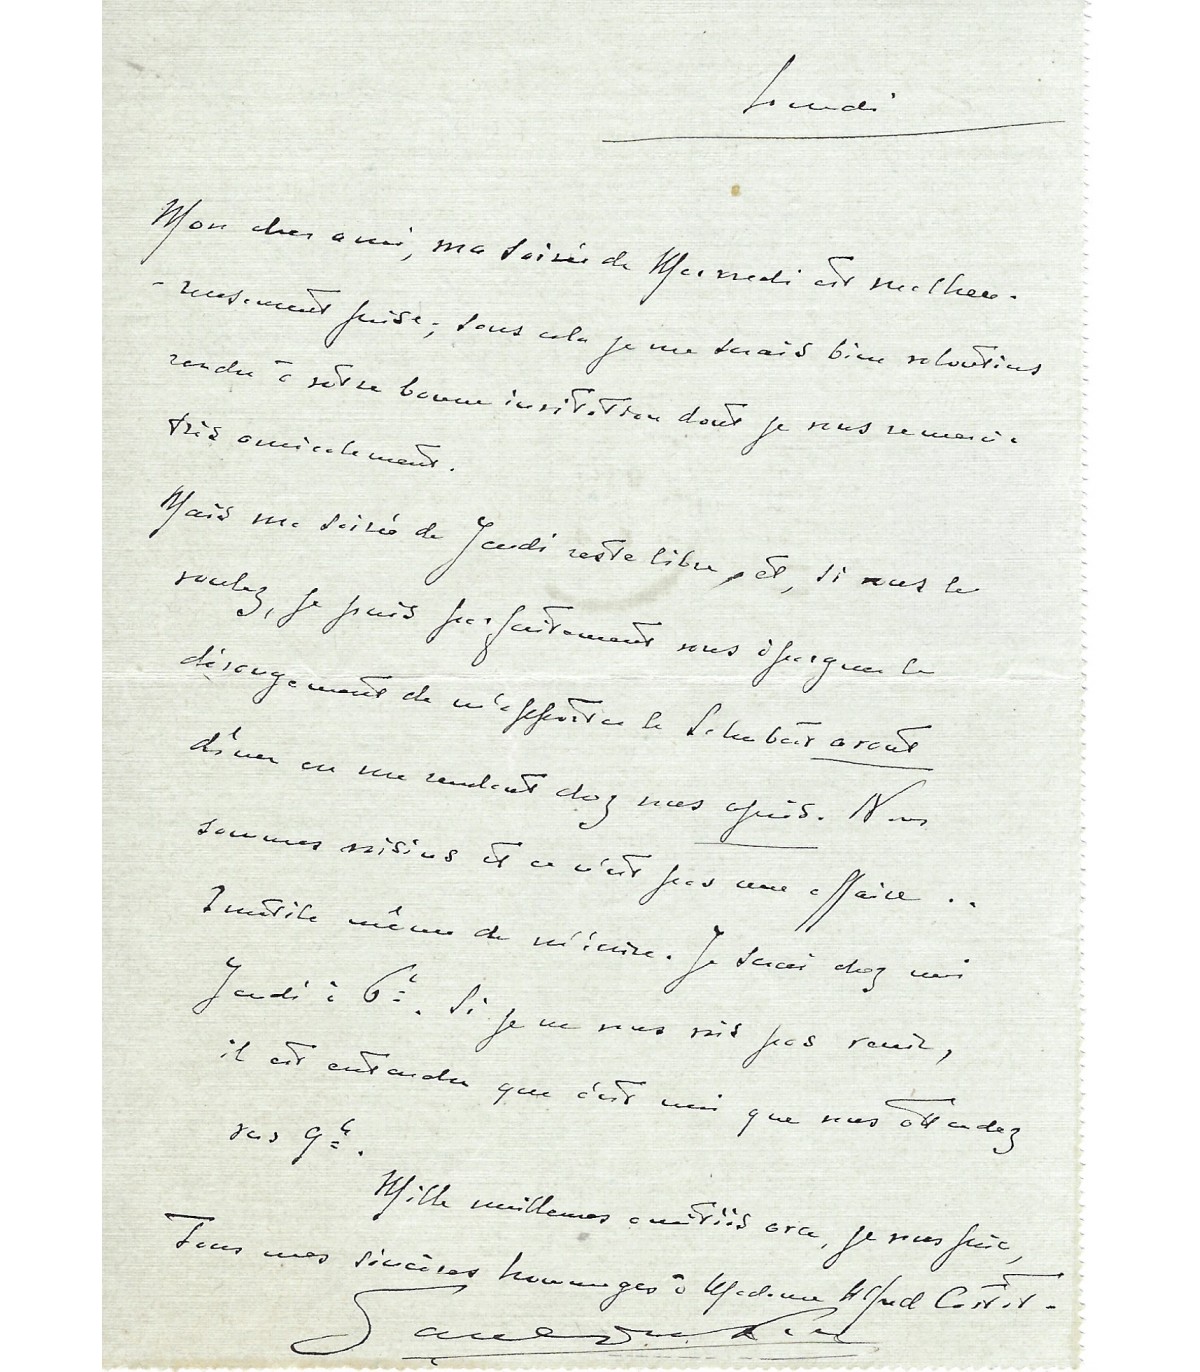 Lundi
Mon cher ami, ma soirée de Mercredi est malheu-
-reusement prise; sans cela je me serais bien volontiers
rendu à votre bonne invitation dont je vous remercie
très amicalement.
Mais ma soirée de Jeudi reste libre, et, si vous le
voulez, je puis parfaitement vous épargner le
dérangement de m'apporter le Schubert avant
dîner en me rendant chez vous après. Nous
sommes voisins et ce n'est pas une affaire ..
Inutile même de m'écrire. Je serai chez moi
Jeudi à 6h. Si je ne vous vois pas venir,
il est entendu que c'est moi que vous attendez
vers 9h.
Mille meilleures amitiés avec, je vous prie,
Tous mes sincères hommages à Madame Alfred Cortot.